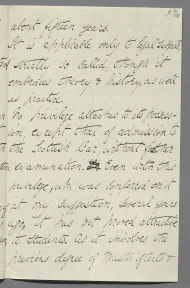 about fifteen years.
It is applicable only to legal subjects
strictly so called, though it
embraces theory & history, as well
as practice.
No privilege attaches to its possess-
ion, except that of admission to
the Scottish Bar, without further
examination. Even with this
privilege, wh. was conferred on it
at my suggestion, several years
ago, it has not proved attractive
to students. As it involves the
previous degree of Master of Arts &